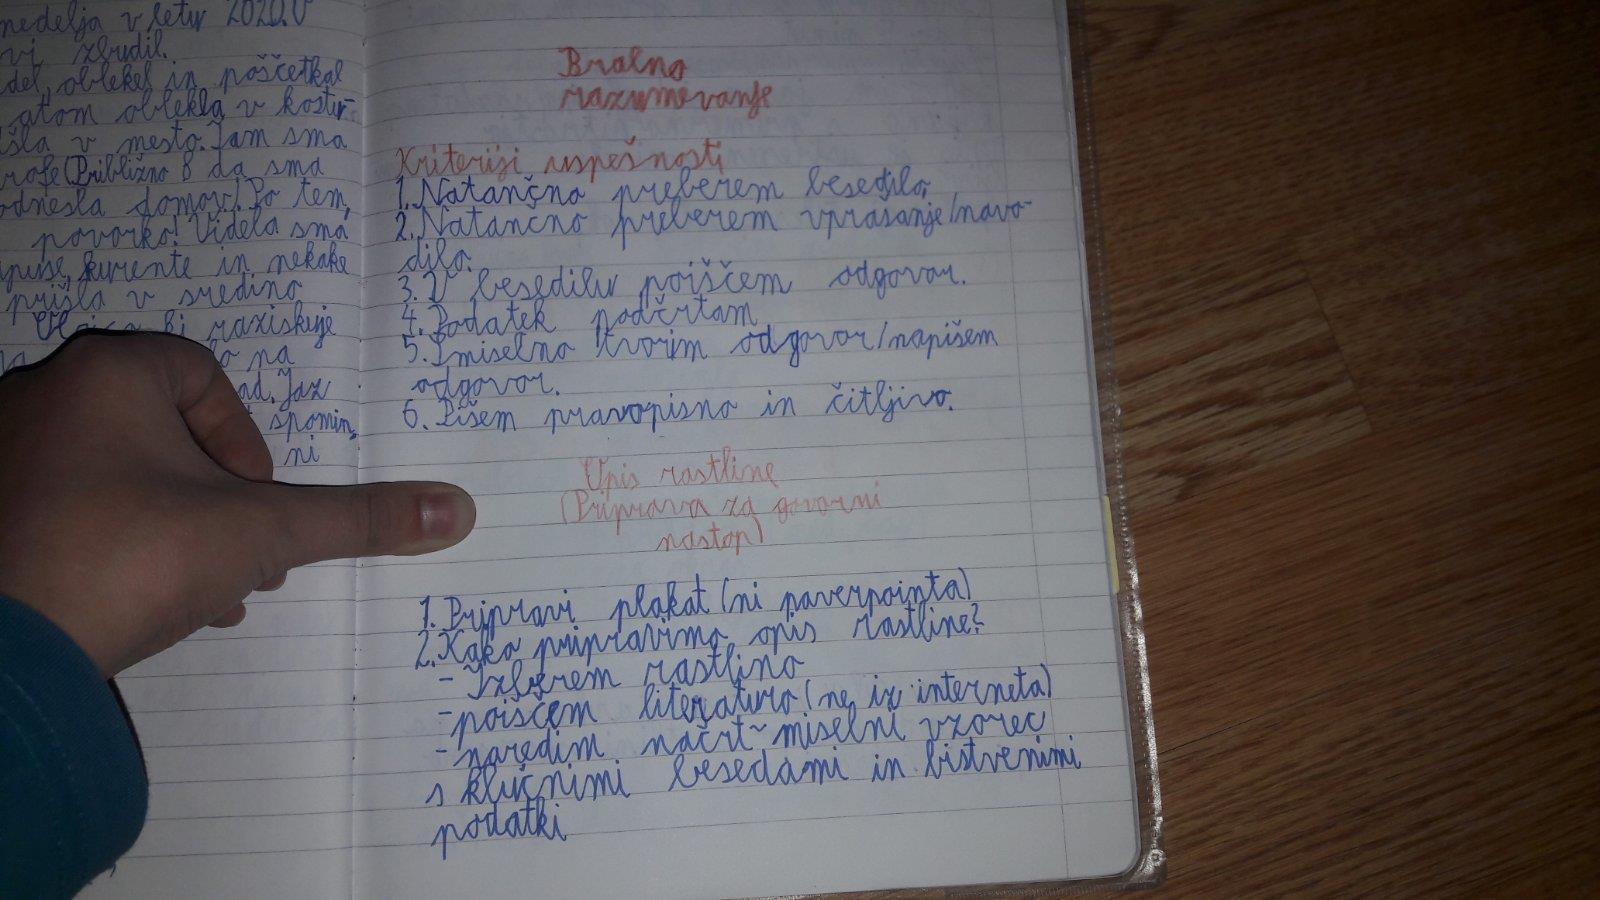 nedelja v letu 2020. V
vi zbudil.
del, oblekel in poščetkal
atom oblekla v kostu-
šla v mesto. Tam sma
rofe (Približno 8 da sma
odnesla domov). Po tem,
povorko! Videla sma
kurente in nekake
prišla v sredino
ki raziskuje
na
ad. Jaz
spomin,
ni
Bralno
razumevanje
Kriteriji uspešnosti
1. Natančno preberem besedilo.
2. Natančno preberem vprašanje/navo-
dilo.
3. V besedilu poiščem odgovor.
4. Podatek podčrtam
5. Smiselno tvorim odgovor/napišem
odgovor.
6. Pišem pravopisno in čitljivo.
Opis rastline
(Priprava za govorni
nastop)
1. Pripravi plakat (ni paverpointa)
2. Kako pripravimo opis rastline?
- Izberem rastlino
- poiščem literaturo (ne iz interneta)
- naredim načrt ~ miselni vzorec
s ključnimi besedami in bistvenimi
podatki